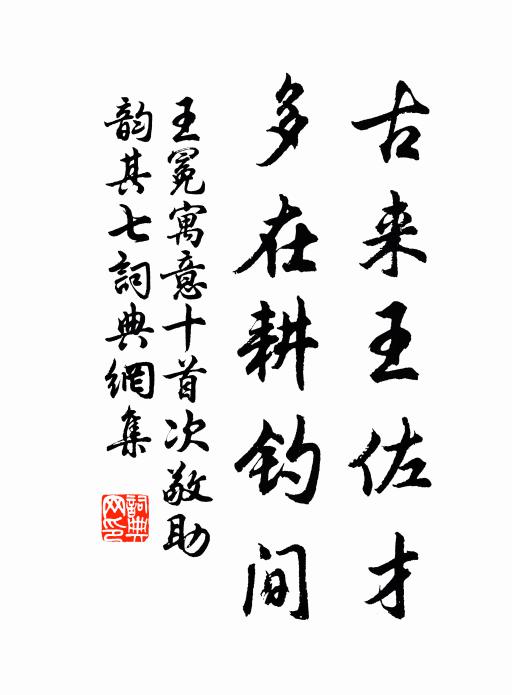 古来王佐才
多在耕钓间
王冕寓意十首次敬助
韵其七詞典網集
詞典
网印